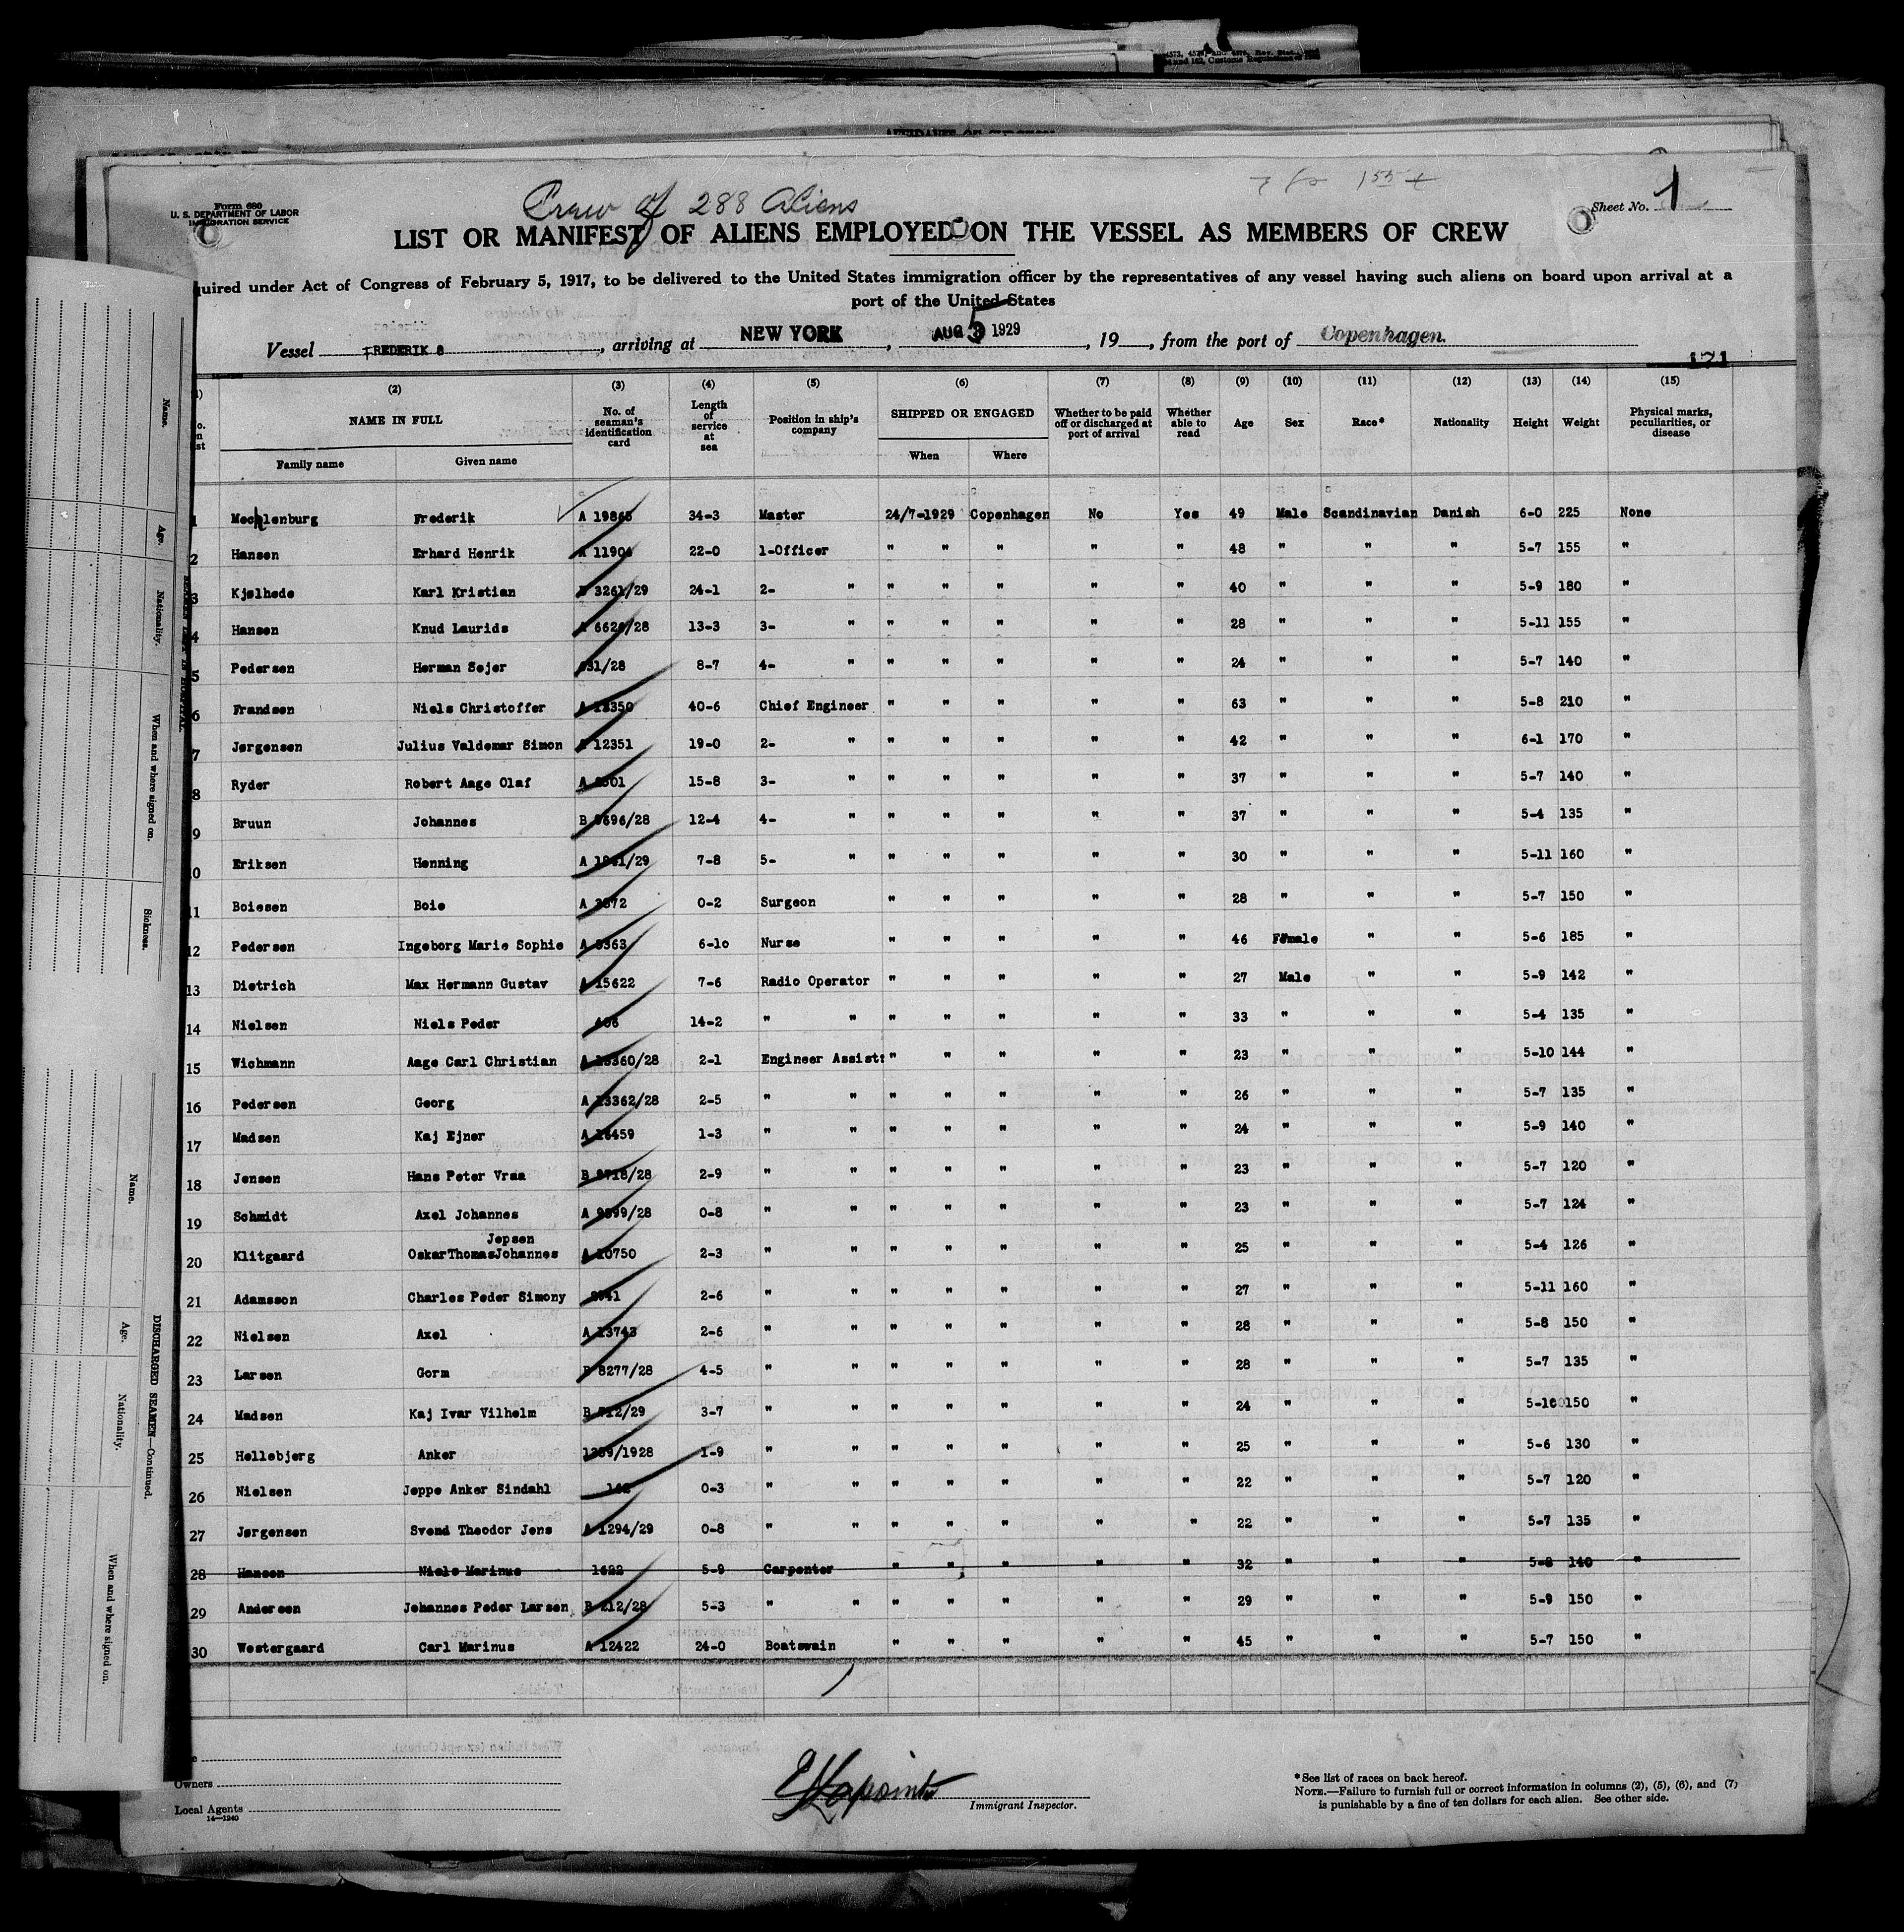 Form 680
U. S. DEPARTMENT OF LABOR
IMMIGRATION SERVICE
Crew of 288 Aliens
Sheet No. 1
LIST OR MANIFEST OF ALIENS EMPLOYED ON THE VESSEL AS MEMBERS OF CREW
quired under Act of Congress of February 5, 1917, to be delivered to the United States immigration officer by the representatives of any vessel having such aliens on board upon arrival at a
port of the United States
Vessel FREDERIK 8, arriving at NEW YORK, AUG 5 1929, 19, from the port of Copenhagen.
171
(2) (3) (4) (5) (6) (7) (8) (9) (10) (11) (12) (13) (14) (15)
NAME IN FULL No. of seaman's identification card Length of service at sea Position in ship's company SHIPPED OR ENGAGED Whether to be paid off or discharged at port of arrival Whether able to read Age Sex Race* Nationality Height Weight Physical marks, peculiarities, or disease
Family name Given name When Where
1 Mechlenburg Frederik A 19865 34-3 Master 24/7-1929 Copenhagen No Yes 49 Male Scandinavian Danish 6-0 225 None
2 Hansen Erhard Henrik A 11904 22-0 1-Officer " " " " " 48 " " " 5-7 155 "
3 Kjølhede Karl Kristian 3261/29 24-1 2- " " " " " " 40 " " " 5-9 180 "
4 Hansen Knud Laurids 6624/28 13-3 3- " " " " " " 28 " " " 5-11 155 "
5 Pedersen Herman Sejer 31/28 8-7 4- " " " " " " 24 " " " 5-7 140 "
6 Frandsen Niels Christoffer A 13350 40-6 Chief Engineer " " " " " 63 " " " 5-8 210 "
7 Jørgensen Julius Valdemar Simon A 12351 19-0 2- " " " " " " 42 " " " 6-1 170 "
8 Ryder Robert Aage Olaf A 15-8 3- " " " " " " 37 " " " 5-7 140 "
9 Bruun Johannes B 9696/28 12-4 4- " " " " " " 37 " " " 5-4 135 "
10 Eriksen Henning A 7-8 5- " " " " " " 30 " " " 5-11 160 "
11 Boiesen Boie A 0-2 Surgeon " " " " " 28 " " " 5-7 150 "
12 Pedersen Ingeborg Marie Sophie A 6-10 Nurse " " " " " 46 Female " " 5-6 185 "
13 Dietrich Max Hermann Gustav A 15622 7-6 Radio Operator " " " " " 27 Male " " 5-9 142 "
14 Nielsen Niels Peder 406 14-2 " " " " " " " 33 " " " 5-4 135 "
15 Wichmann Aage Carl Christian A 13360/28 2-1 Engineer Assist: " " " " " 23 " " " 5-10 144 "
16 Pedersen Georg A 13362/28 2-5 " " " " " " " 26 " " " 5-7 135 "
17 Madsen Kaj Ejner A 16459 1-3 " " " " " " " 24 " " " 5-9 140 "
18 Jensen Hans Peter Vraa B 9718/28 2-9 " " " " " " " 23 " " " 5-7 120 "
19 Schmidt Axel Johannes A 9899/28 0-8 " " " " " " " 23 " " " 5-7 124 "
Jepsen
20 Klitgaard OskarThomasJohannes A 10750 2-3 " " " " " " " 25 " " " 5-4 126 "
21 Adamsson Charles Peder Simony 2-6 " " " " " " " 27 " " " 5-11 160 "
22 Nielsen Axel A 13743 2-6 " " " " " " " 28 " " " 5-8 150 "
23 Larsen Gorm B 8277/28 4-5 " " " " " " " 28 " " " 5-7 135 "
24 Madsen Kaj Ivar Vilhelm B 3-7 " " " " " " " 24 " " " 5-10 150 "
25 Hellebjerg Anker 1-9 " " " " " " " 25 " " " 5-6 130 "
26 Nielsen Jeppe Anker Sindahl 0-3 " " " " " " " 22 " " " 5-7 120 "
27 Jørgensen Svend Theodor Jens A 1294/29 0-8 " " " " " " " 22 " " " 5-7 135 "
28 Hansen Niels Marinus 1622 5-9 Carpenter " " " " " 32 " " " 5-8 140 "
29 Andersen Johannes Peder Larsen B 212/28 5-3 " " " " " " " 29 " " " 5-9 150 "
30 Westergaard Carl Marinus A 12422 24-0 Boatswain " " " " " 45 " " " 5-7 150 "
Owners
Local Agents
14—1240
Immigrant Inspector.
*See list of races on back hereof.
NOTE.—Failure to furnish full or correct information in columns (2), (5), (6), and (7)
is punishable by a fine of ten dollars for each alien. See other side.
Name.
Age.
Nationality.
When and where signed on.
Sickness.
DISCHARGED SEAMEN—Continued.
Name.
Age.
Nationality.
When and where signed on.